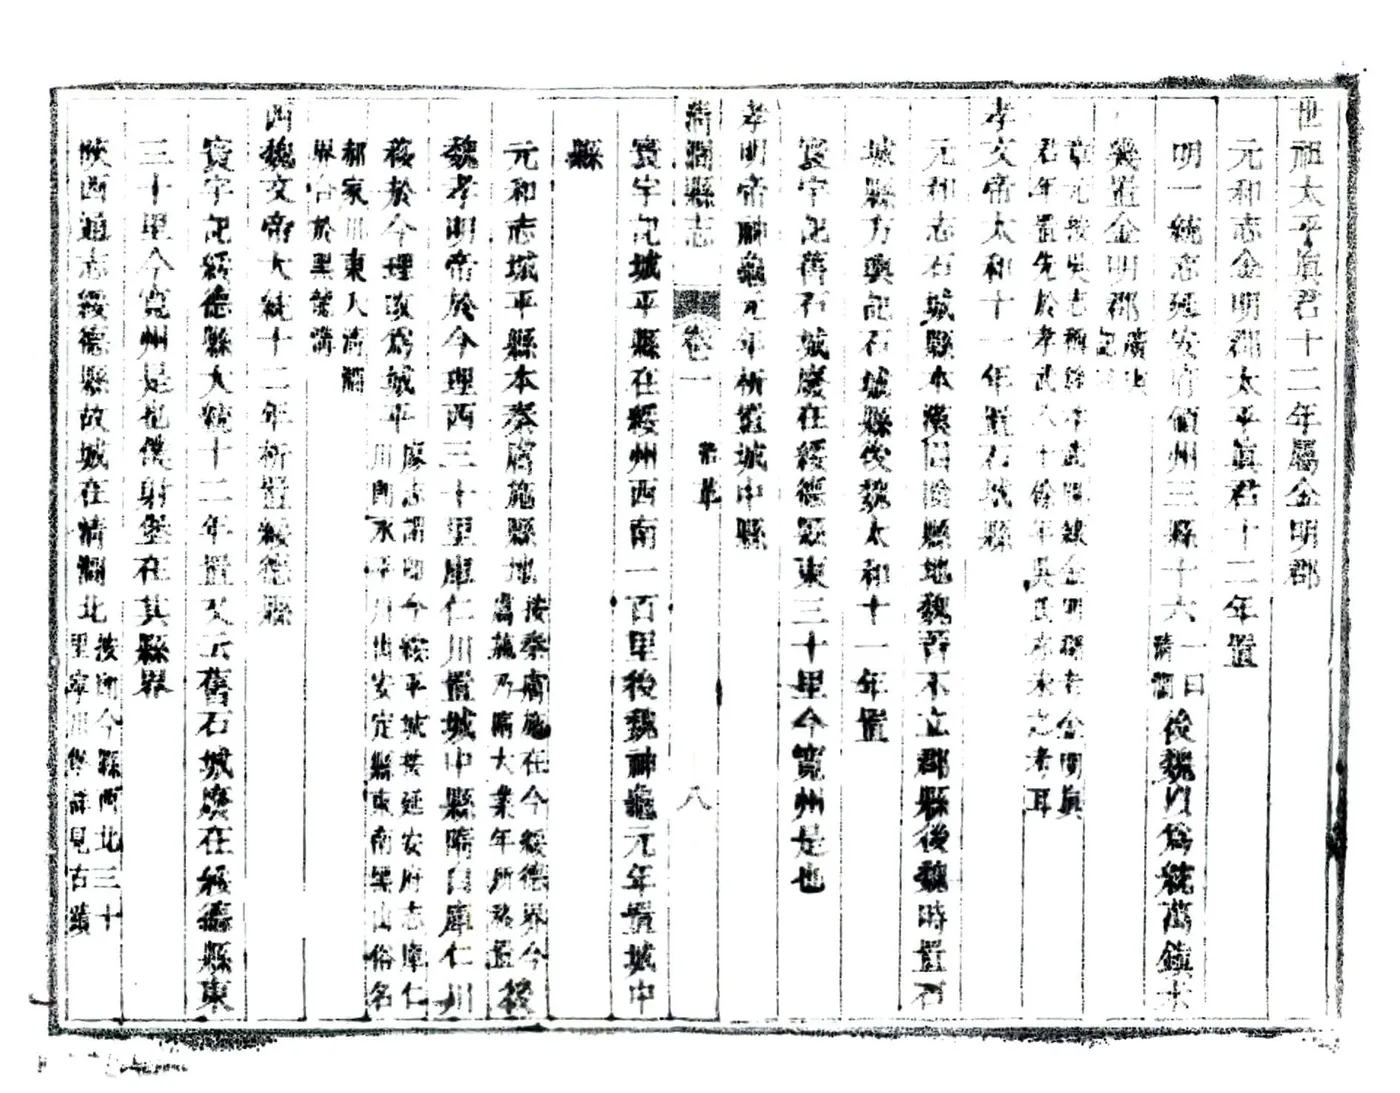 世祖太平眞君十二年屬金明郡
元和志金明郡太平眞君十二年置
明一統志延安府領州三縣十六
一曰
清澗
後魏以爲統萬鎮太
幾置金明郡
章元按吳志
金明郡者金明眞
君年置先於孝武八十餘年吳氏亦未之考耳
孝文帝太和十一年置石城縣
元和志石城縣本漢圁陰縣地魏晉不立郡縣後魏時置石
城縣方輿記石城縣後魏太和十一年置
寰宇記舊石城廢在綏德縣東三十里今寬州是也
孝明帝神龜元年析置城中縣
清澗縣志
卷一
沿革
八
寰宇記城平縣在綏州西南一百里後魏神龜元年置城中
縣
元和志城平縣本秦膚施縣地
按秦膚施在今綏德界今
膚施乃隋大業年所改置
後
魏孝明帝於今理西三十里庫仁川置城中縣隋自庫仁川
移於今理改爲城平
廖志謂即今綏平城按延安府志庫仁
川即水平川出安定縣東南黑山俗名
郝家川東入清澗
界合於黑龍溝
西魏文帝大統十二年析置綏德縣
寰宇記綏德縣大統十二年置又云舊石城廢在綏德縣東
三十里今寬州是也僕射堡在其縣界
陝西通志綏德縣故城在清澗北
按所今縣西北三十
里寧川堡詳見古蹟